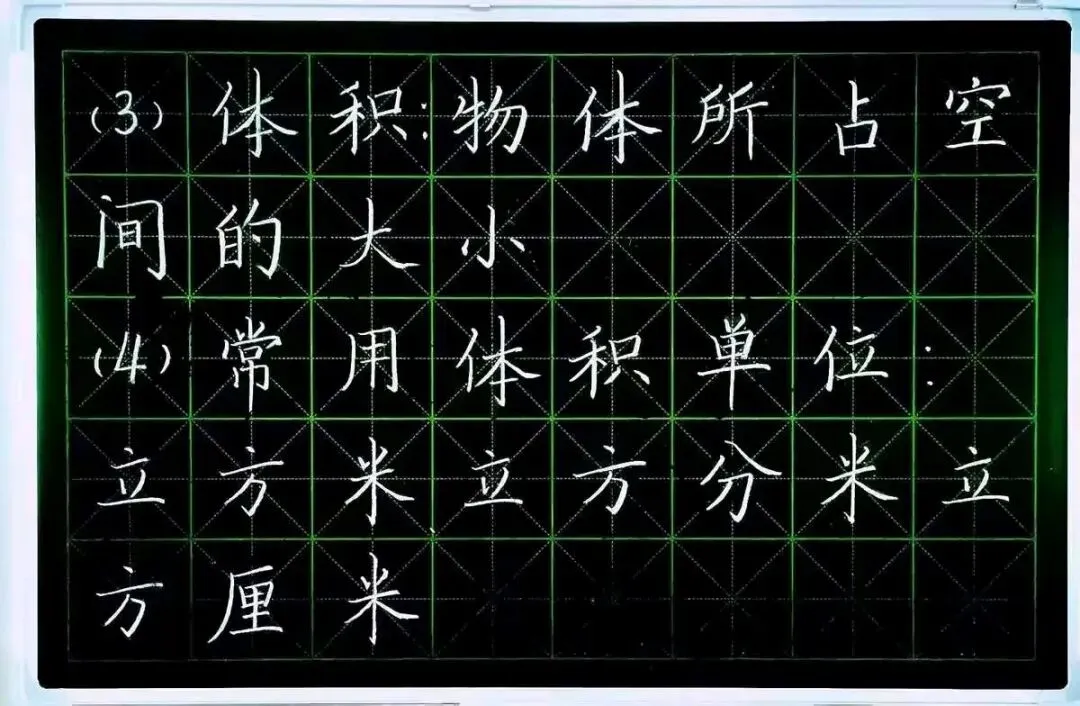 (3)体积:物体所占空
间的大小
(4)常用体积单位:
立方米立方分米立
方厘米